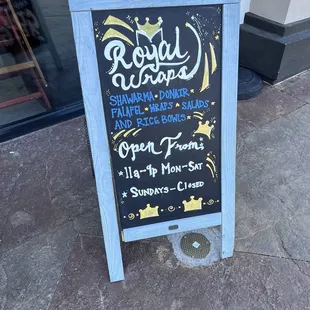 Royal
Wraps
SHAWARMA • DONAIR
FALAFEL • WRAPS • SALADS
AND RICE BOWLS
Open From:
* 11a-9p Mon-Sat
* Sundays - Closed